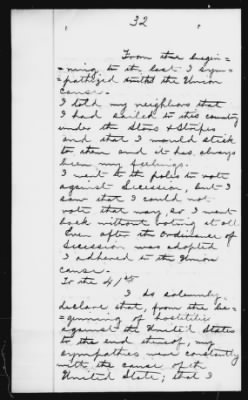 32
From the begin=
=ning to the last I sym=
=pathized with the Union
cause.
I told my neighbors that
I had sailed to this country
under the Stars & Stripes
and that I would stick
to them and it has always
been my feelings.
I went to the polls to vote
against Secession, but I
saw that I could not
vote that way, so I went
back without voting at all
Even after the Ordinance of
Secession was adopted
I adhered to the Union
cause.
To the 41st
I do solemnly
declare that, from the be=
=ginning of hostilities
against the United States
to the end thereof, my
sympathies were constantly
with the cause of the
United States; that I